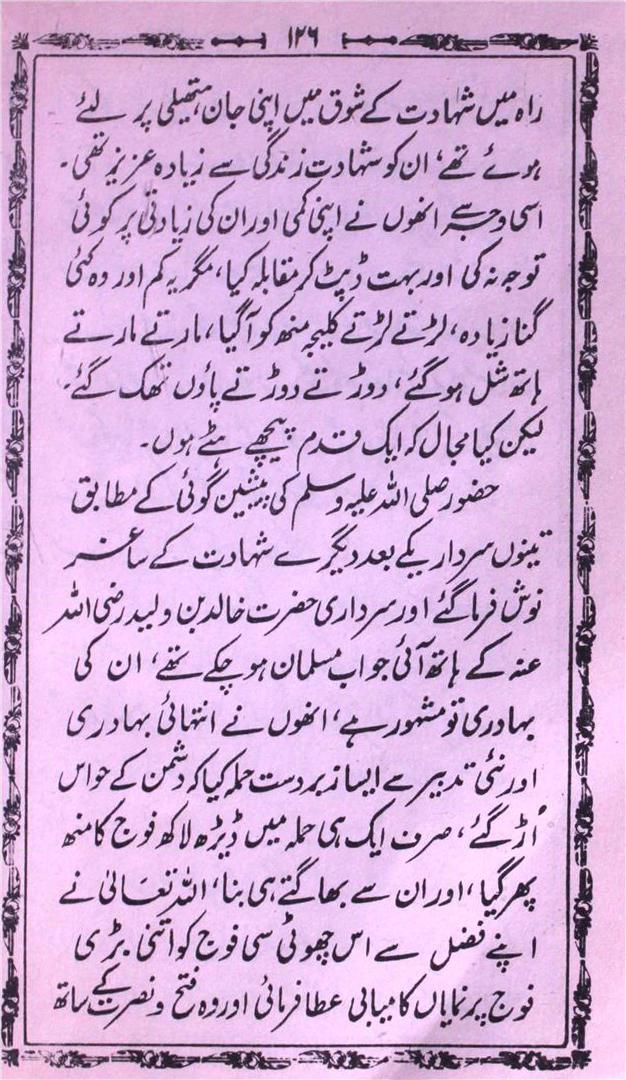 ۱۲۶
راہ میں شہادت کے شوق میں اپنی جان ہتھیلی پر لئے
ہوئے تھے، ان کو شہادت زندگی سے زیادہ عزیز تھی۔
اسی وجہ سے انھوں نے اپنی کمی اور ان کی زیادتی پر کوئی
توجہ نہ کی اور بہت ڈپٹ کر مقابلہ کیا، مگر یہ کم اور وہ کئی
گنا زیادہ، لڑتے لڑتے کلیجہ منھ کو آ گیا، مارتے مارتے
ہاتھ شل ہو گئے، دوڑتے دوڑتے پاؤں تھک گئے۔
لیکن کیا مجال کہ ایک قدم پیچھے ہٹے ہوں۔
حضور صلی اللہ علیہ وسلم کی پیشین گوئی کے مطابق
تینوں سردار یکے بعد دیگرے شہادت کے ساغر
نوش فرما گئے اور سرداری حضرت خالد بن ولید رضی اللہ
عنہ کے ہاتھ آئی جو اب مسلمان ہو چکے تھے، ان کی
بہادری تو مشہور ہے، انھوں نے انتہائی بہادری
اور نئی تدبیر سے ایسا زبردست حملہ کیا کہ دشمن کے حواس
اُڑ گئے، صرف ایک ہی حملہ میں ڈیڑھ لاکھ فوج کا منھ
پھر گیا، اور ان سے بھاگتے ہی بنا، اللہ تعالیٰ نے
اپنے فضل سے اس چھوٹی سی فوج کو اتنی بڑی
فوج پر نمایاں کامیابی عطا فرمائی اور وہ فتح و نصرت کے ساتھ